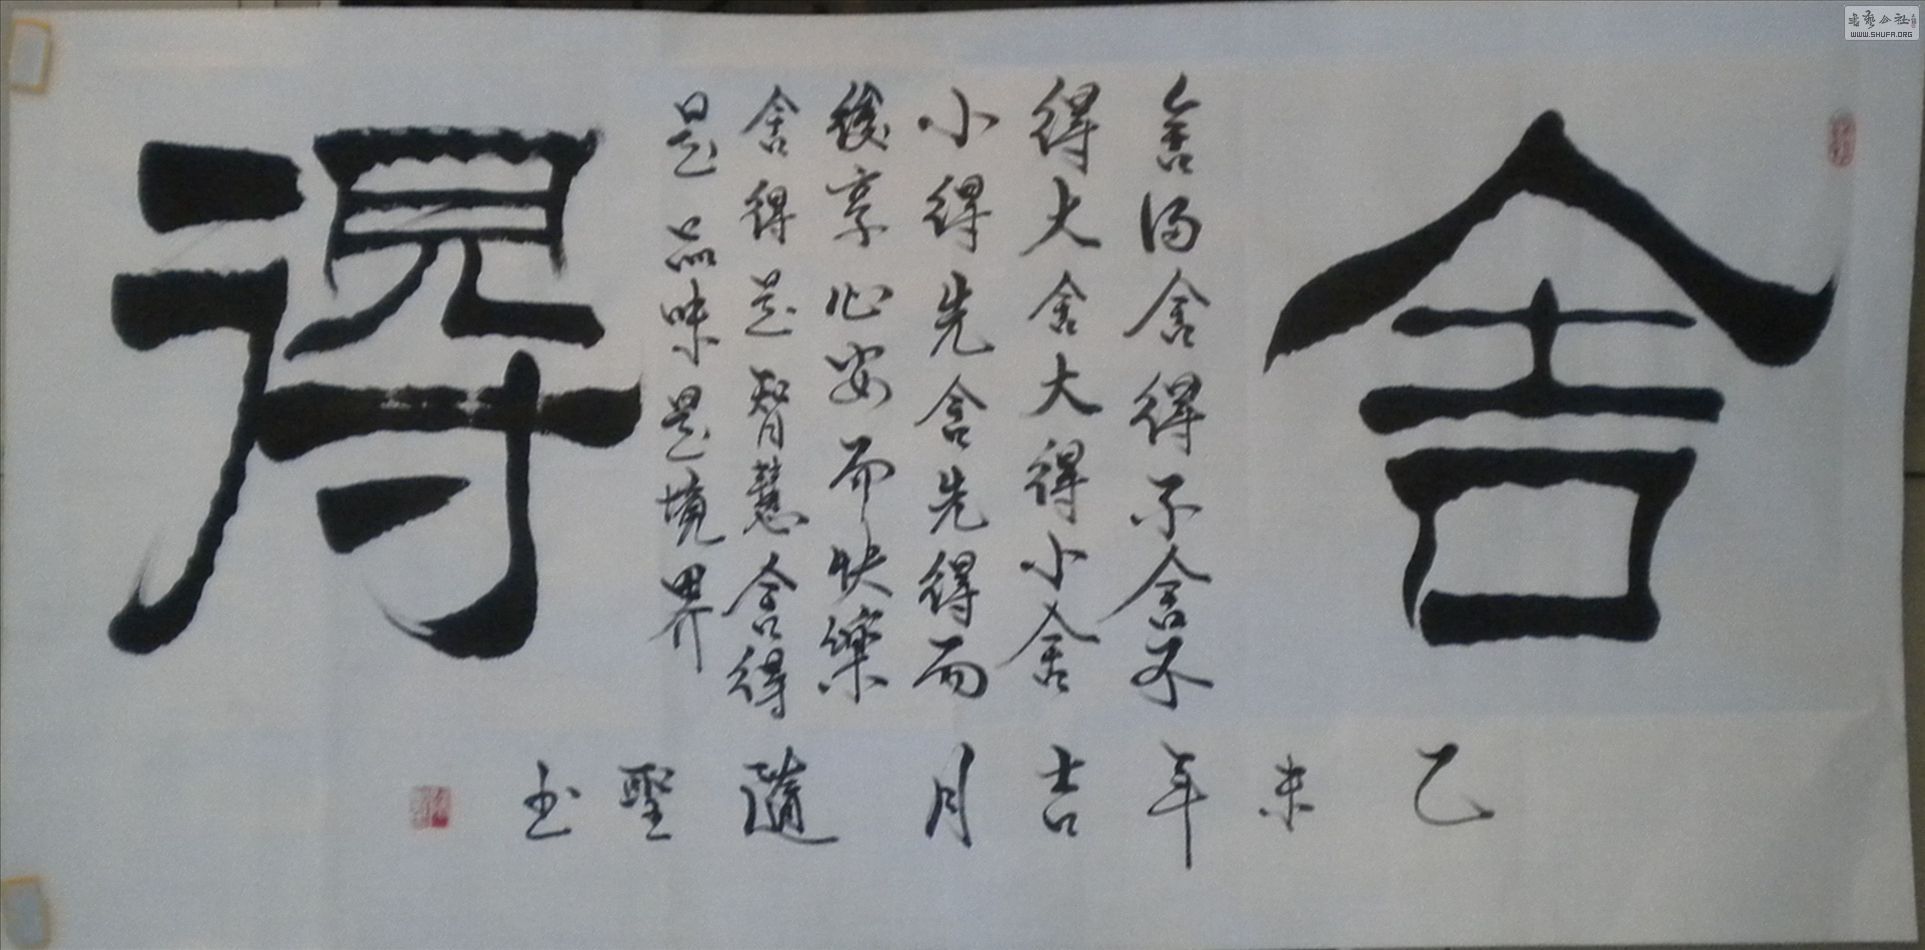 舍得
舍得舍得不舍不
得大舍大得小舍
小得先舍先得而
後享心安而快樂
舍得是智慧舍得
是品味是境界
乙未年吉月隨聖书
WWW.SHUFA.ORG